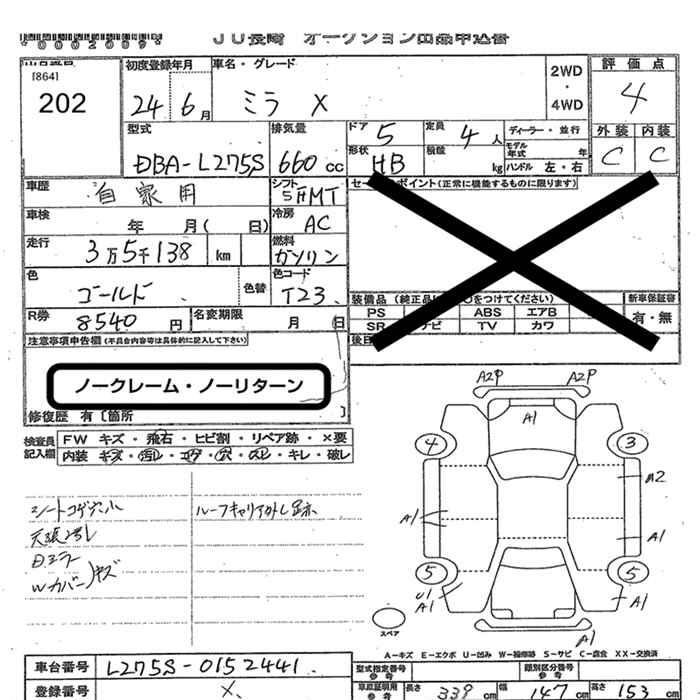 *0002009*
JU長崎 オークション出品申込書
[864]
202
初度登録年月
24 6月
車名・グレード
ミラ X
2WD
・
4WD
評価点
4
型式
DBA-L275S
排気量
660 cc
ドア 5
定員 4 人
形状 HB
積酸 kg
ディーラー・並行
モデル年式 年
ハンドル 左・右
外装 内装
C C
車歴 自家用
シフト
5 MT
車検 年 月( 日)
冷房
AC
走行 3万5千138 km
燃料
ガソリン
色 ゴールド
色替
色コード
T23
R券 8540 円
名変期限 月 日
セールスポイント(正常に機能するものに限ります)
装備品 (純正品に○をつけてください)
新車保証書
PS ABS エアB
有・無
SR ナビ TV カワ
後日
注意事項申告欄(不具合内容等は具体的に記入して下さい)
ノークレーム・ノーリターン
修復歴 有〔箇所 〕
検査員記入欄
FW キズ・飛石・ヒビ割・リペア跡・×要
内装 キズ・汚レ・コゲ・穴・スレ・キレ・破レ
シートコゲ穴小
天張汚レ
Dミラー
Wカバー キズ
ルーフキャリア外し跡
A2P A2P
A1
4 3
A2
A1
A1
5 5
U1
A1
A1
スペア
A-キズ E-エクボ U-凹み W-補修跡 S-サビ C-腐食 XX-交換済
車台番号 L275S-0152441
登録番号 X
型式指定番号
参考
類別区分番号
参考
車庫証明用
参考
長さ 339 cm 幅 147 cm 高さ 153 cm